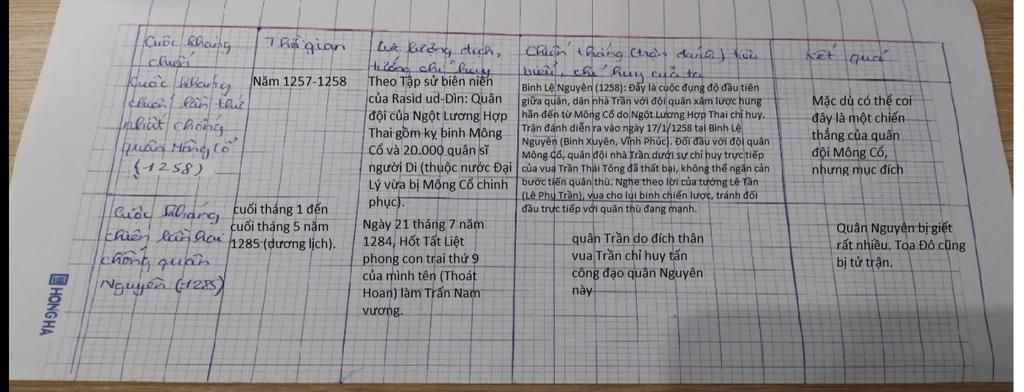 Cuộc kháng
chiến
Thời gian
Lực lượng địch,
tướng chỉ huy
Chiến thắng (trận đánh) tiêu
biểu, chỉ huy của ta
Kết quả
Cuộc kháng
chiến lần thứ
nhất chống
quân Mông Cổ
(1258)
Năm 1257-1258
Theo Tập sử biên niên
của Rasid ud-Din: Quân
đội của Ngột Lương Hợp
Thai gồm kỵ binh Mông
Cổ và 20.000 quân sĩ
người Di (thuộc nước Đại
Lý vừa bị Mông Cổ chinh
phục).
Bình Lệ Nguyên (1258): Đây là cuộc đụng độ đầu tiên
giữa quân, dân nhà Trần với đội quân xâm lược hung
hãn đến từ Mông Cổ do Ngột Lương Hợp Thai chỉ huy.
Trận đánh diễn ra vào ngày 17/1/1258 tại Bình Lệ
Nguyên (Bình Xuyên, Vĩnh Phúc). Đối đầu với đội quân
Mông Cổ, quân đội nhà Trần dưới sự chỉ huy trực tiếp
của vua Trần Thái Tông đã thất bại, không thể ngăn cản
bước tiến quân thù. Nghe theo lời của tướng Lê Tần
(Lê Phụ Trần), vua cho lui binh chiến lược, tránh đối
đầu trực tiếp với quân thù đang mạnh.
Mặc dù có thể coi
đây là một chiến
thắng của quân
đội Mông Cổ,
nhưng mục đích
Cuộc kháng
chiến lần hai
chống quân
Nguyên (1285)
cuối tháng 1 đến
cuối tháng 5 năm
1285 (dương lịch).
Ngày 21 tháng 7 năm
1284, Hốt Tất Liệt
phong con trai thứ 9
của mình tên (Thoát
Hoan) làm Trấn Nam
vương.
quân Trần do đích thân
vua Trần chỉ huy tấn
công đạo quân Nguyên
này
Quân Nguyên bị giết
rất nhiều. Toa Đô cũng
bị tử trận.
HONG HA